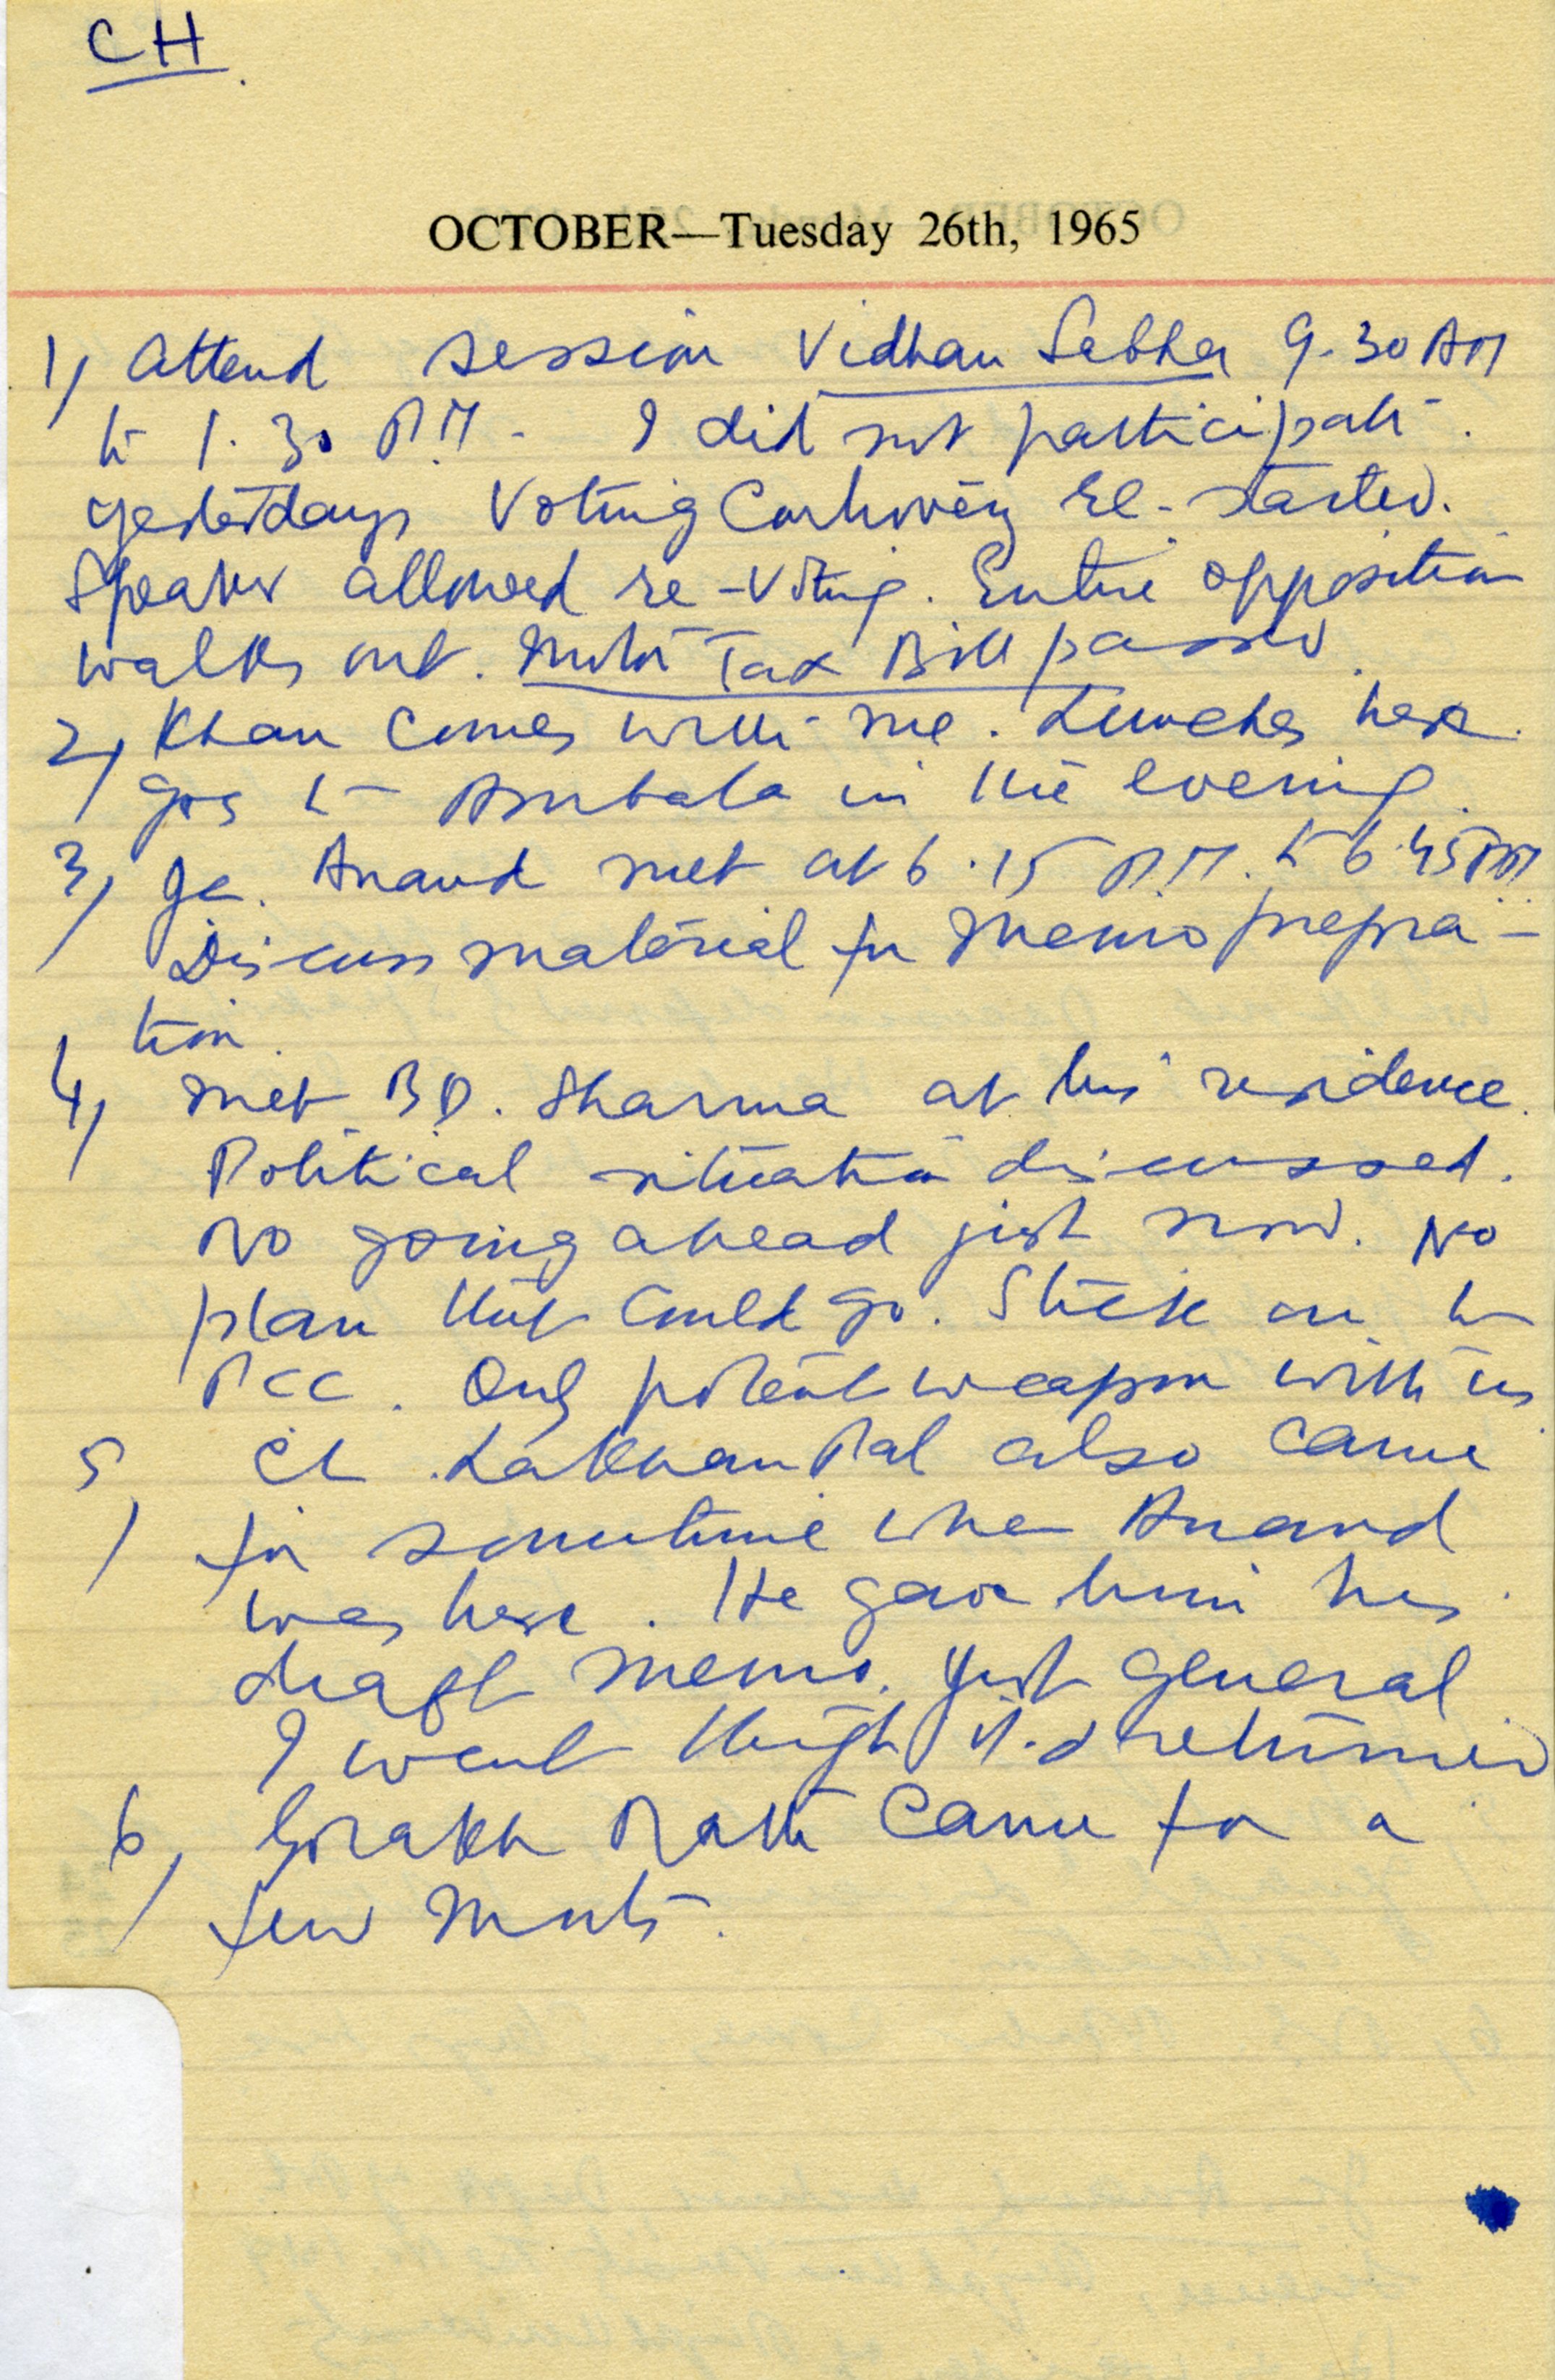 CH.
OCTOBER—Tuesday 26th, 1965
1) Attend session Vidhan Sabha 9.30 AM
to 1.30 P.M. I did not participate.
Yesterdays Voting Controversy re-started.
Speaker allowed re-voting. Entire opposition
walks out. Motor Tax Bill passed.
2) Khan comes with me. Lunches here.
goes to Ambala in the evening.
3) Anand met at 6.15 P.M. to 6.45 PM
Discuss material for memo prepra-
tion.
4) met B.D. Sharma at his residence.
Political situation discussed.
No going ahead just now. No
plan that could go. Stick on to
PCC. Only potent weapon with us
5) Ch. Lakhan Pal also came
for sometime when Anand
was here. He gave him his
draft memo. Just general
I went through it & returned
6) Gorakh Nath came for a
few mnts.